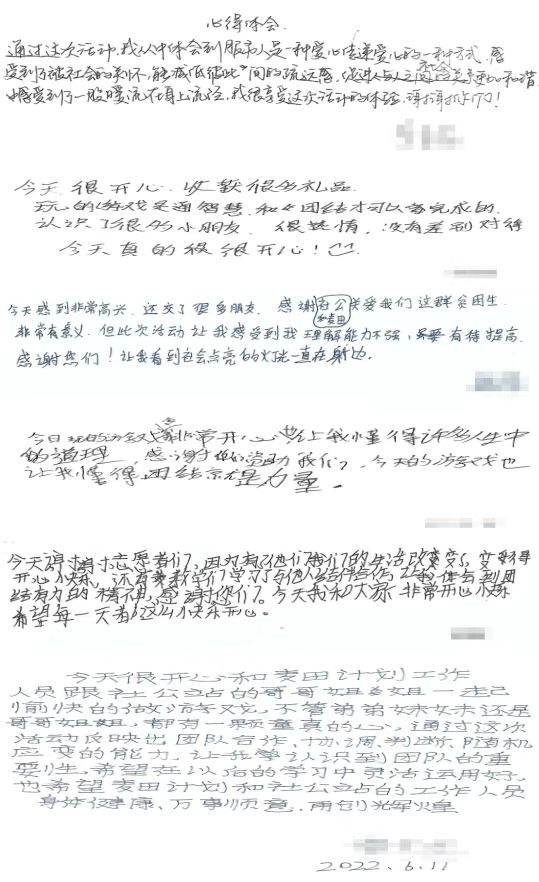 心得体会
通过这次活动,我从中体会到服务人是一种爱心传递爱心的一种方式,感
受到了被社会的关怀,能减低彼此间的疏远感,促进人与人之间的社会关系更加和谐
感受到了一股暖流在身上流经,我很享受这次活动的体验,谢谢你们!
今天很开心.收获很多礼品.
玩的游戏是通智慧.和团结才可以够完成的.
认识了很多小朋友.很热情,没有差别对待
今天真的很很开心!
今天感到非常高兴.还交了很多朋友.感谢社公和麦田关爱我们这群贫困生.
非常有意义.但此次活动让我感受到我理解能力不强、有待提高.
感谢您们!让我看到社会点亮的火一直在身边.
今日玩的游戏非常开心也让我懂得许多人生中
的道理,感谢他们资助我们,今天的游戏也
让我懂得团结就是力量。
今天谢谢志愿者们,因为有了他们我们的生活改变了,变得
开心快乐,还有教我们学习了与他人结伴合作让我体会到团
结有力的精神,感谢你们。今天我和大家非常开心快乐
希望每一天都这么快乐开心。
今天很开心和麦田计划工作
人员跟社公站的哥哥姐姐一起
愉快的做游戏,不管弟弟妹妹还是
哥哥姐姐,都有一颗童真的心,通过这次
活动反映出团队合作、协调、判断、随机
应变的能力,让我学认识到团队的重
要性,希望在以后的学习中灵活运用好,
也希望麦田计划和社公站的工作人员
身体健康、万事顺意,再创辉煌
2022.6.11